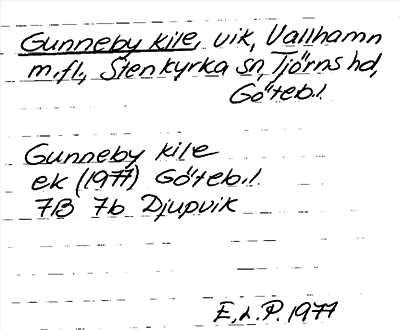 Gunneby kile, vik, Vallhamn
m.fl., Stenkyrka sn, Tjörns hd,
Göteb.l.
Gunneby kile
ek (1977) Göteb.l.
7B 7b Djupvik
E.L.P. 1977